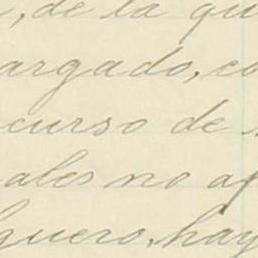 , de la qu
argado, co
curso de
ales no ap
guero, hay